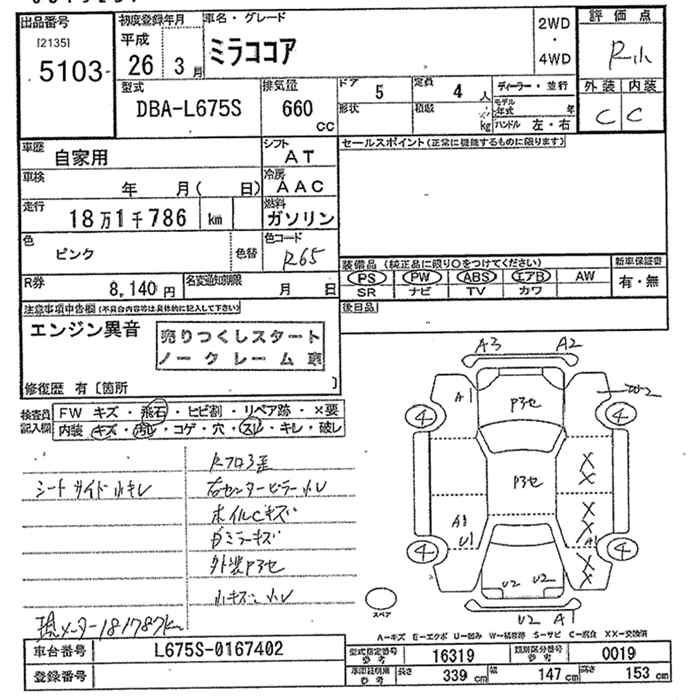 出品番号
[2135]
5103
初度登録年月
平成
26 3月
車名・グレード
ミラココア
2WD
・
4WD
評価点
R小
外装 内装
C C
型式
DBA-L675S
排気量
660
cc
ドア 5
形状
定員 4 人
積載 kg
ディーラー・並行
モデル年式 年
ハンドル 左・右
車歴
自家用
シフト
AT
車検
年 月( 日)
冷房
AAC
走行
18万1千786 km
燃料
ガソリン
色
ピンク
色替
色コード
R65
R券
8,140円
名変通知期限
月 日
セールスポイント(正常に機能するものに限ります)
装備品(純正品に限り○をつけてください)
PS PW ABS エアB AW
SR ナビ TV カワ
新車保証書
有・無
後日品
注意事項申告欄(不具合内容等は具体的に記入して下さい)
エンジン異音
売りつくしスタート
ノークレーム車
修復歴 有〔箇所 〕
検査員記入欄
FW キズ・飛石・ヒビ割・リペア跡・×要
内装 キズ・汚レ・コゲ・穴・スレ・キレ・破レ
シートサイド小キレ
右センターピラー小レ
ホイルCキズ
Dミラーキズ
外装P3セ
現メーター181787km
A3 A2
A1
P3セ
W2
4 4
P3セ
X
X
A1
U1
X
X
A1
4 4
XX
U2 U2
U2 A1
スペア
A－キズ E－エクボ U－凹み W－補修跡 S－サビ C－腐食 XX－交換済
車台番号
L675S-0167402
登録番号
型式指定番号
参考
16319
類別区分番号
参考
0019
車両証別
参考
長さ 339 cm
幅 147 cm
高さ 153 cm